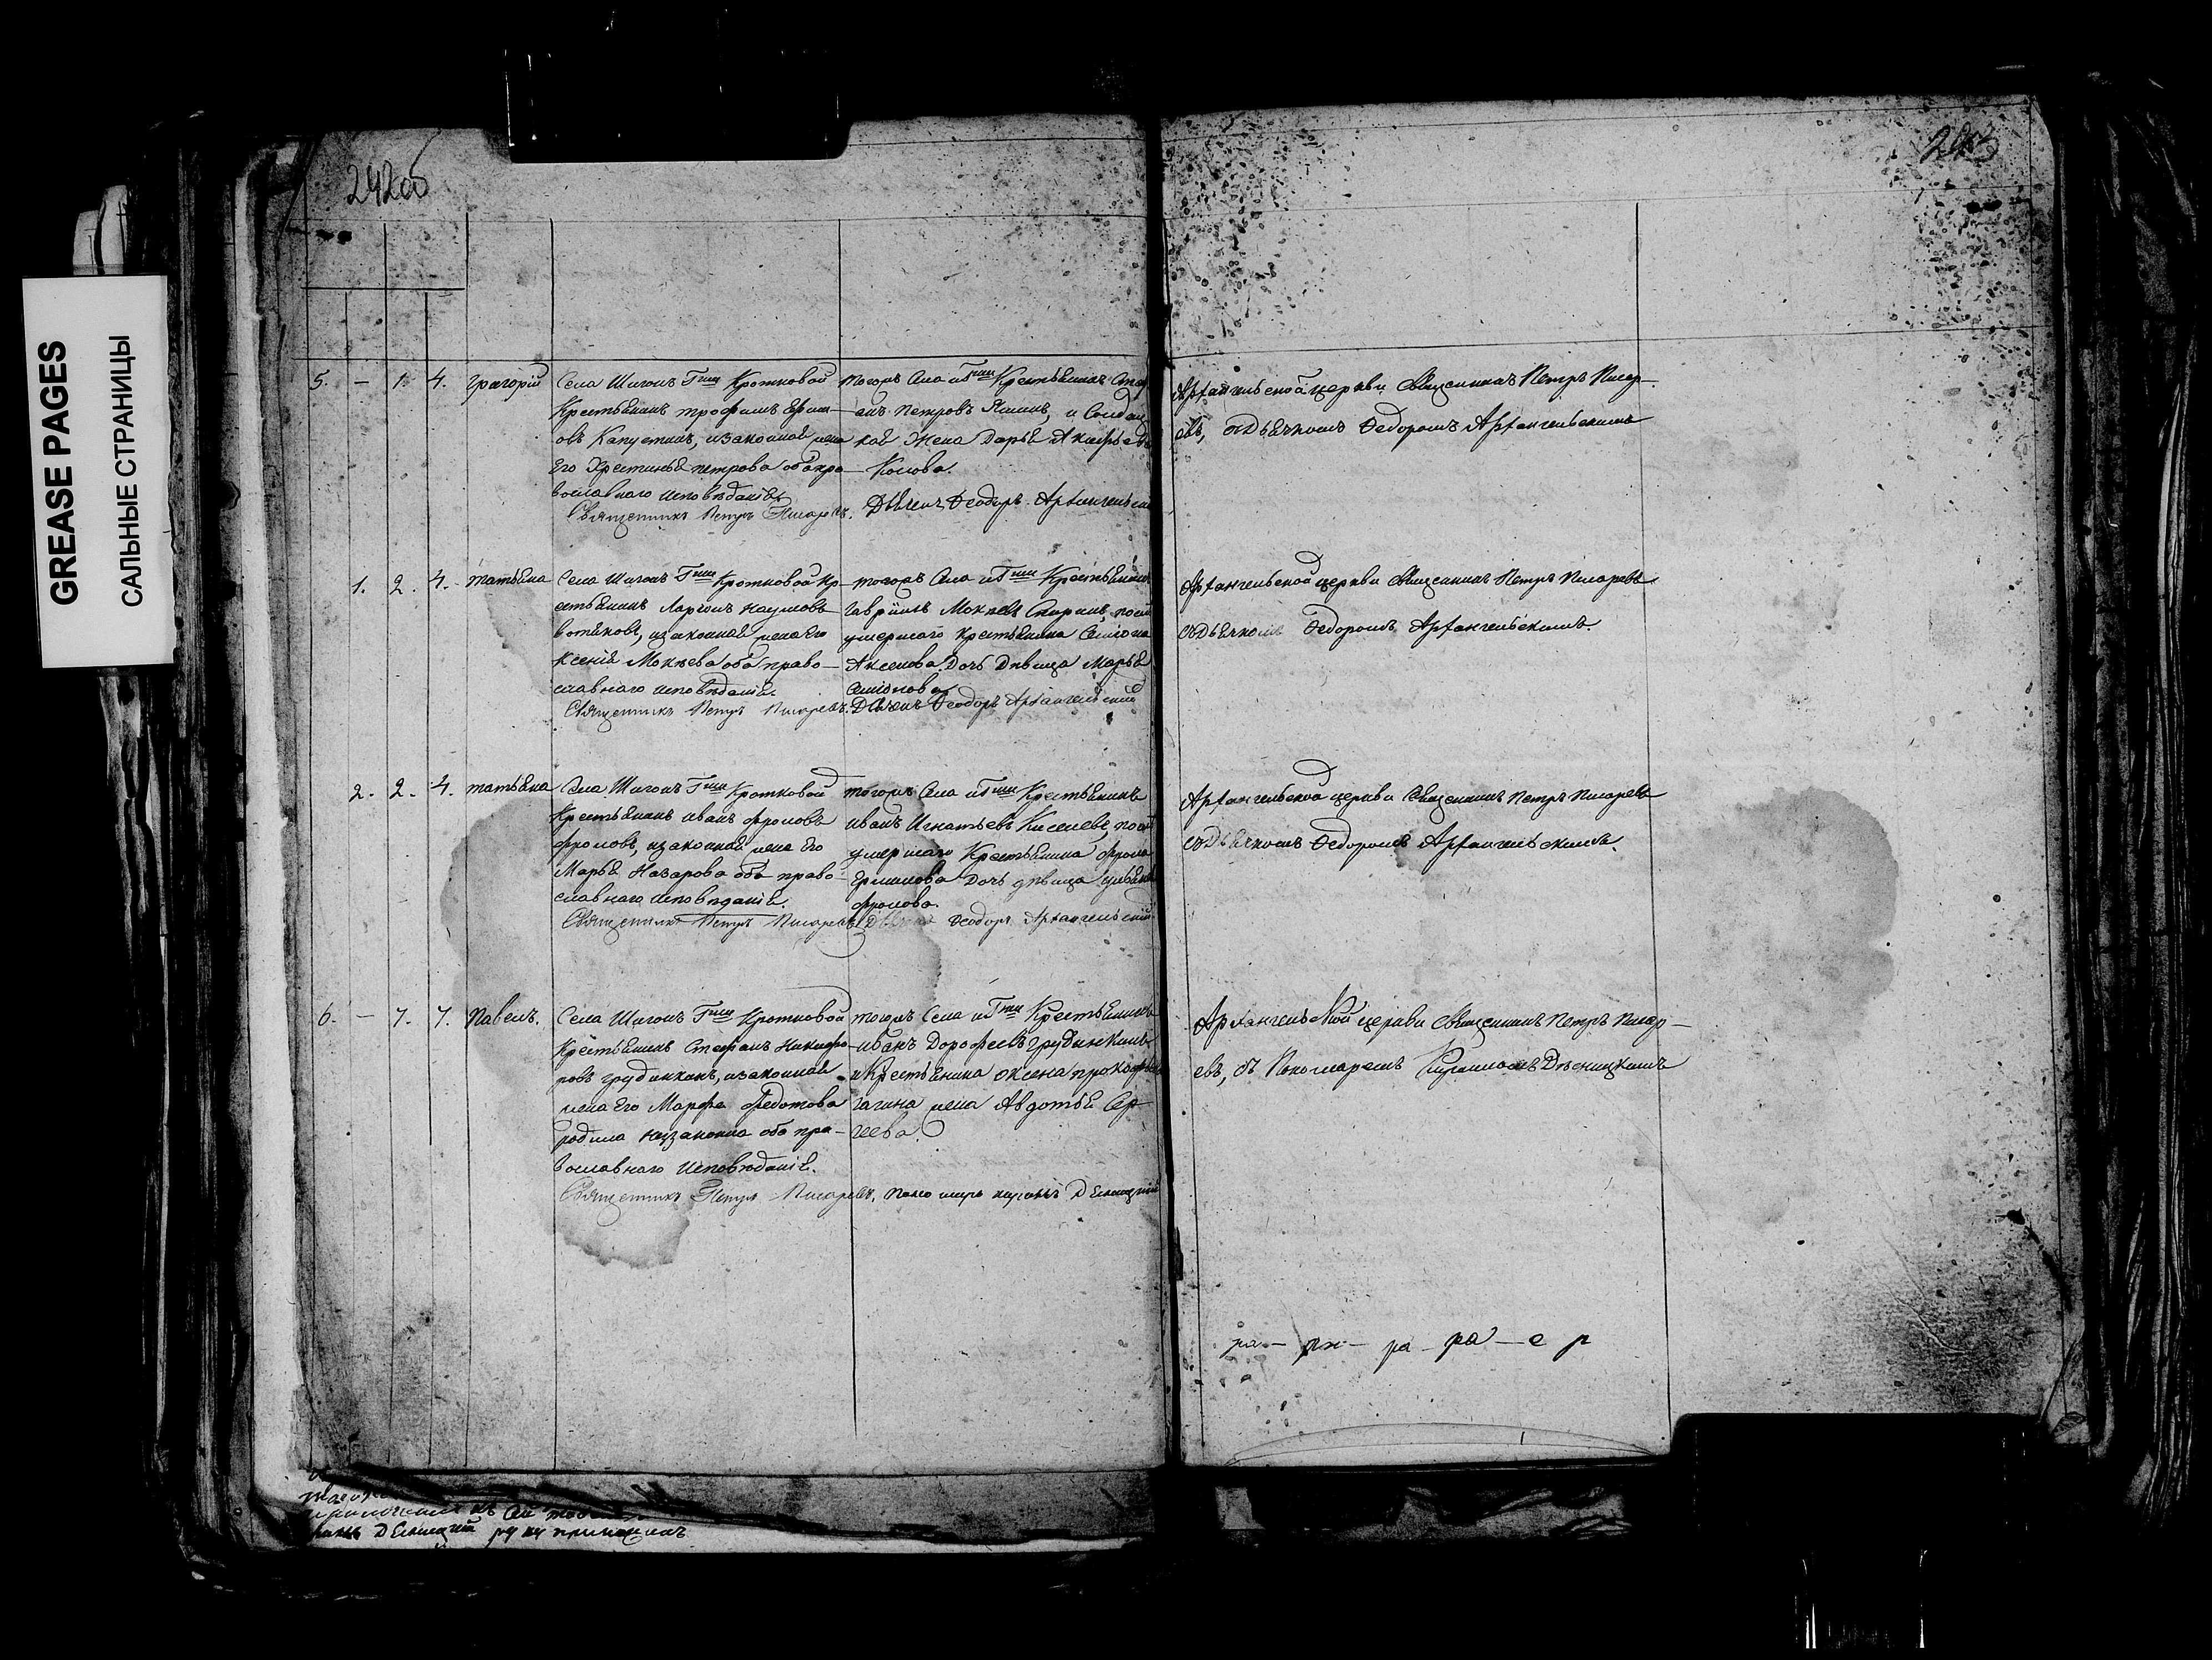 GREASE PAGES
САЛЬНЫЕ СТРАНИЦЫ
242об
243
5. — 1. 4. Григорій
Села Шигонъ Гжи Кротковой
Крестьянинъ трофимъ Ефим—
овъ Капустинъ, изаконная жена
Его Христинья петрова оба пра—
вославнаго исповѣданія
Священникъ Петръ Писаревъ.
тогожъ Села иГжи Крестьянинъ
петровъ Яшинъ, и Солдат
кая Жена Дарья
Дьячекъ Феодоръ Архангельскій
Архангельской церкви Священникъ Петръ Писар—
евъ, съ Дьячкомъ Федоромъ Архангельскимъ
1. 2. 4. татьяна
Села Шигонъ Гжи Кротковой Кр—
естьянинъ Ларіонъ Наумовъ
изаконная жена Его
Ксенія Мокѣева оба право—
славнаго исповѣданія.
Священникъ Петръ Писаревъ.
тогожъ Села иГжи Крестьянинъ
Гавріилъ Мокѣевъ
умершаго Крестьянина Семіона
Аксенова Дочь Дѣвица Марья
Семіонова
Дьячекъ Феодоръ Архангельскій
Архангельской церкви Священникъ Петръ Писаревъ
съДьячкомъ Федоромъ Архангельскимъ.
2. 2. 4. татьяна
Села Шигонъ Гжи Кротковой
Крестьянинъ иванъ фроловъ
фроловъ, изаконная жена Его
Марья Назарова оба право—
славнаго исповѣданія.
Священникъ Петръ Писаревъ
тогожъ Села иГжи Крестьянинъ
иванъ Игнатьевъ Киселевъ,
умершаго Крестьянина фрола
Ермилова Дочь дѣвица
фролова.
Дьячекъ Феодоръ Архангельскій
Архангельской церкви Священникъ Петръ Писаревъ
съДьячкомъ Федоромъ Архангельскимъ.
6. — 7. 7. Павелъ.
Села Шигонъ Гжи Кротковой
Крестьянинъ Стефанъ Никифо—
ровъ грудинкинъ, изаконная
жена Его Марфа Федотова
оба пра—
вославнаго исповѣданія.
Священникъ Петръ Писаревъ.
тогожъ Села иГжи Крестьянинъ
иванъ Дорофеевъ грудинкинъ
иКрестьянина
жена Авдотья Сер—
геева.
Пономарь Дѣсницкій
Архангельской церкви Священникъ Петръ Писар—
евъ, съ Пономаремъ Дѣсницкимъ
ра — ра — ра — е р
руку приложилъ